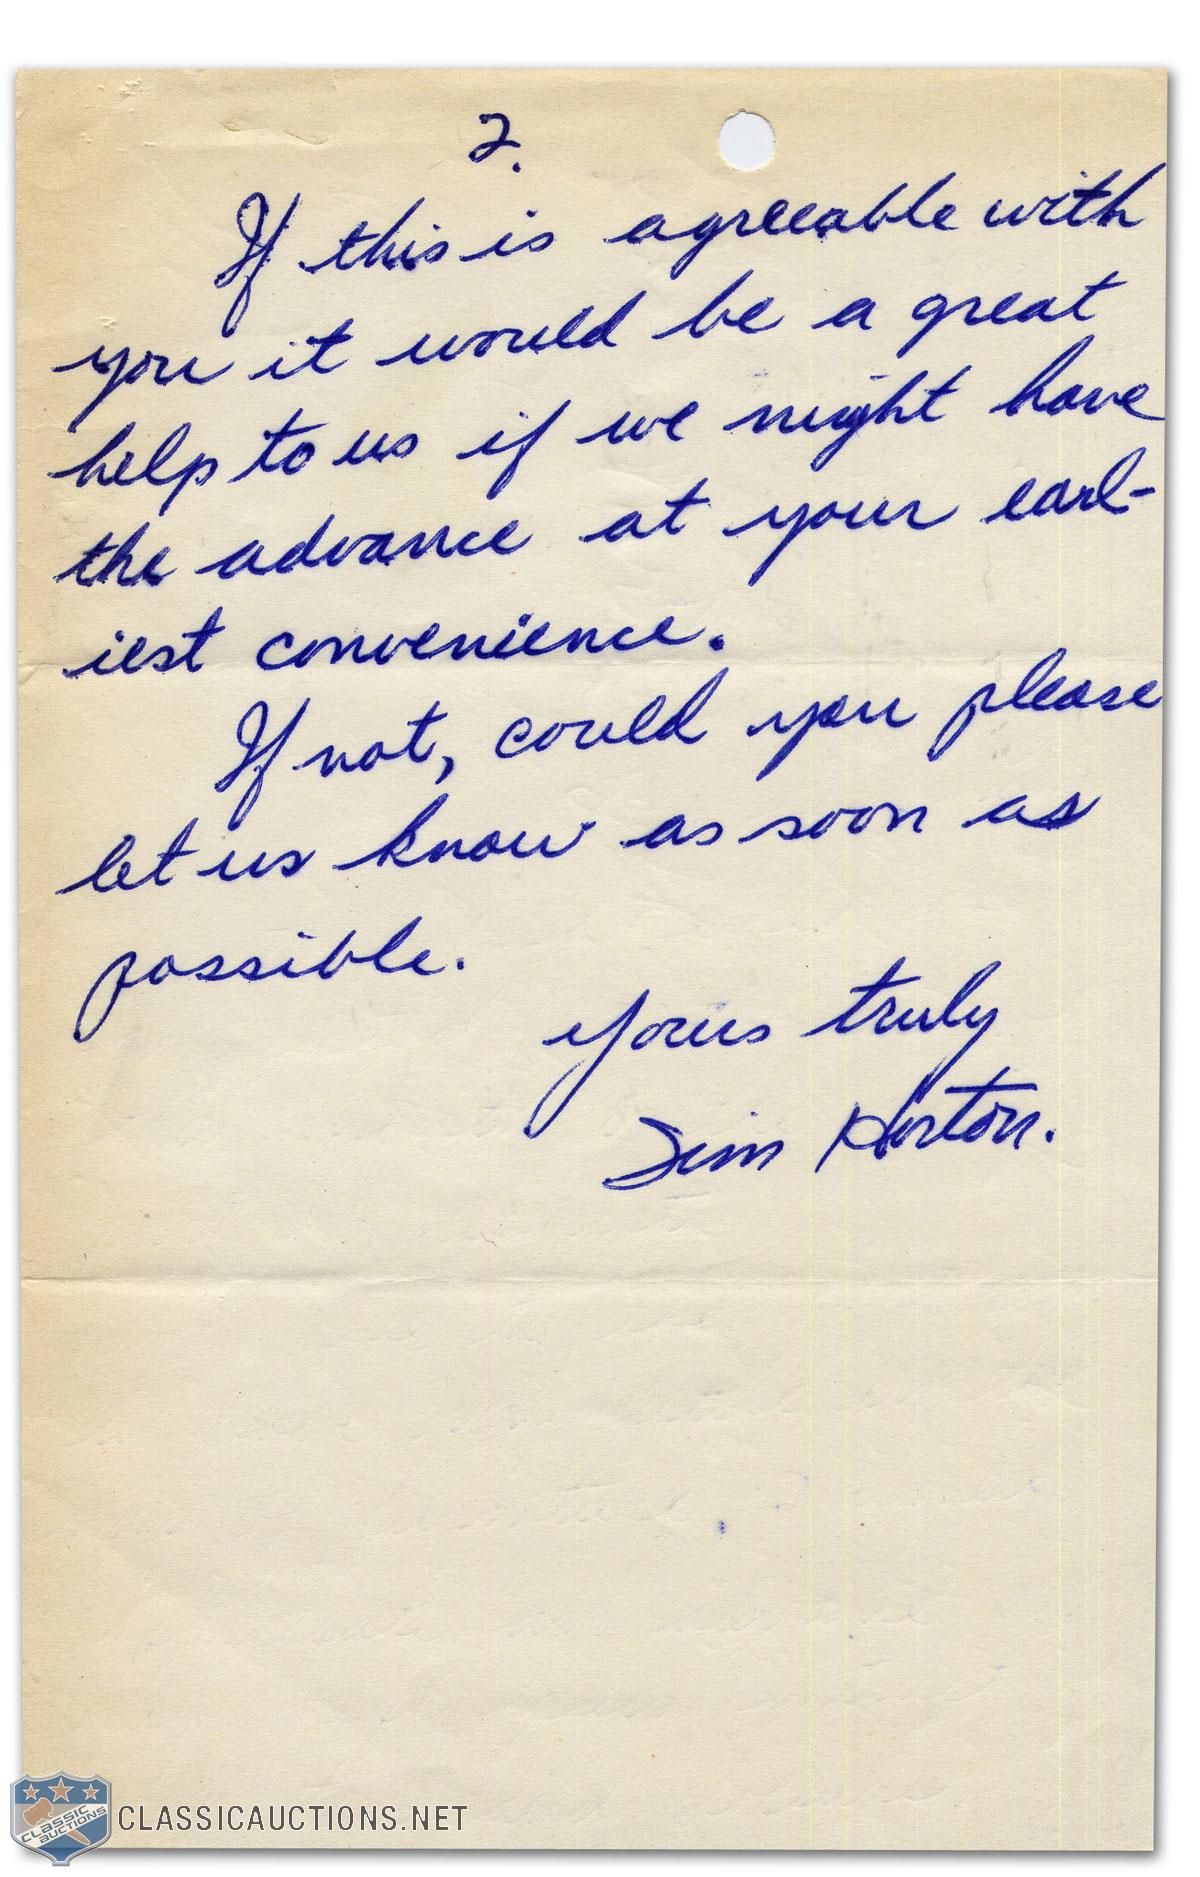 2.
If this is agreeable with
you it would be a great
help to us if we might have
the advance at your earl-
iest convenience.
If not, could you please
let us know as soon as
possible.
Yours truly
Tim Horton.
CLASSIC AUCTIONS
CLASSICAUCTIONS.NET